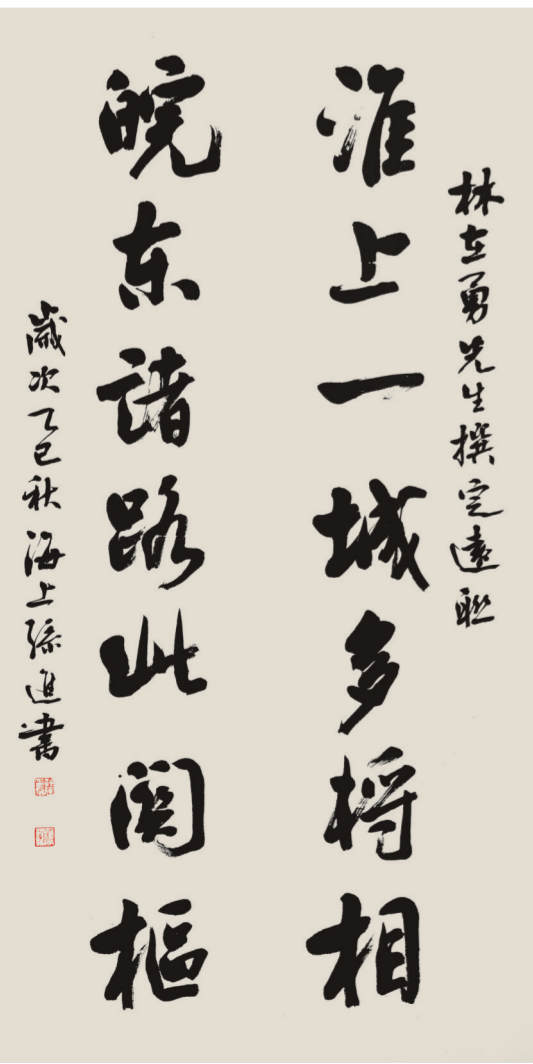 林在勇先生撰定遠聯
淮上一城多將相
皖东諸路此関樞
歲次乙巳秋海上孫進書